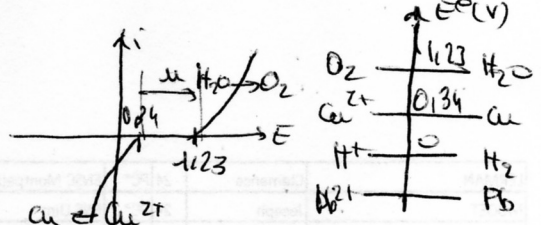 i
E°(V)
u
H₂O→O₂
0,34
E
1.23
Cu ⇌ Cu²⁺
1,23
O₂
H₂O
Cu²⁺
0,34
Cu
H⁺
0
H₂
Pb²⁺
Pb